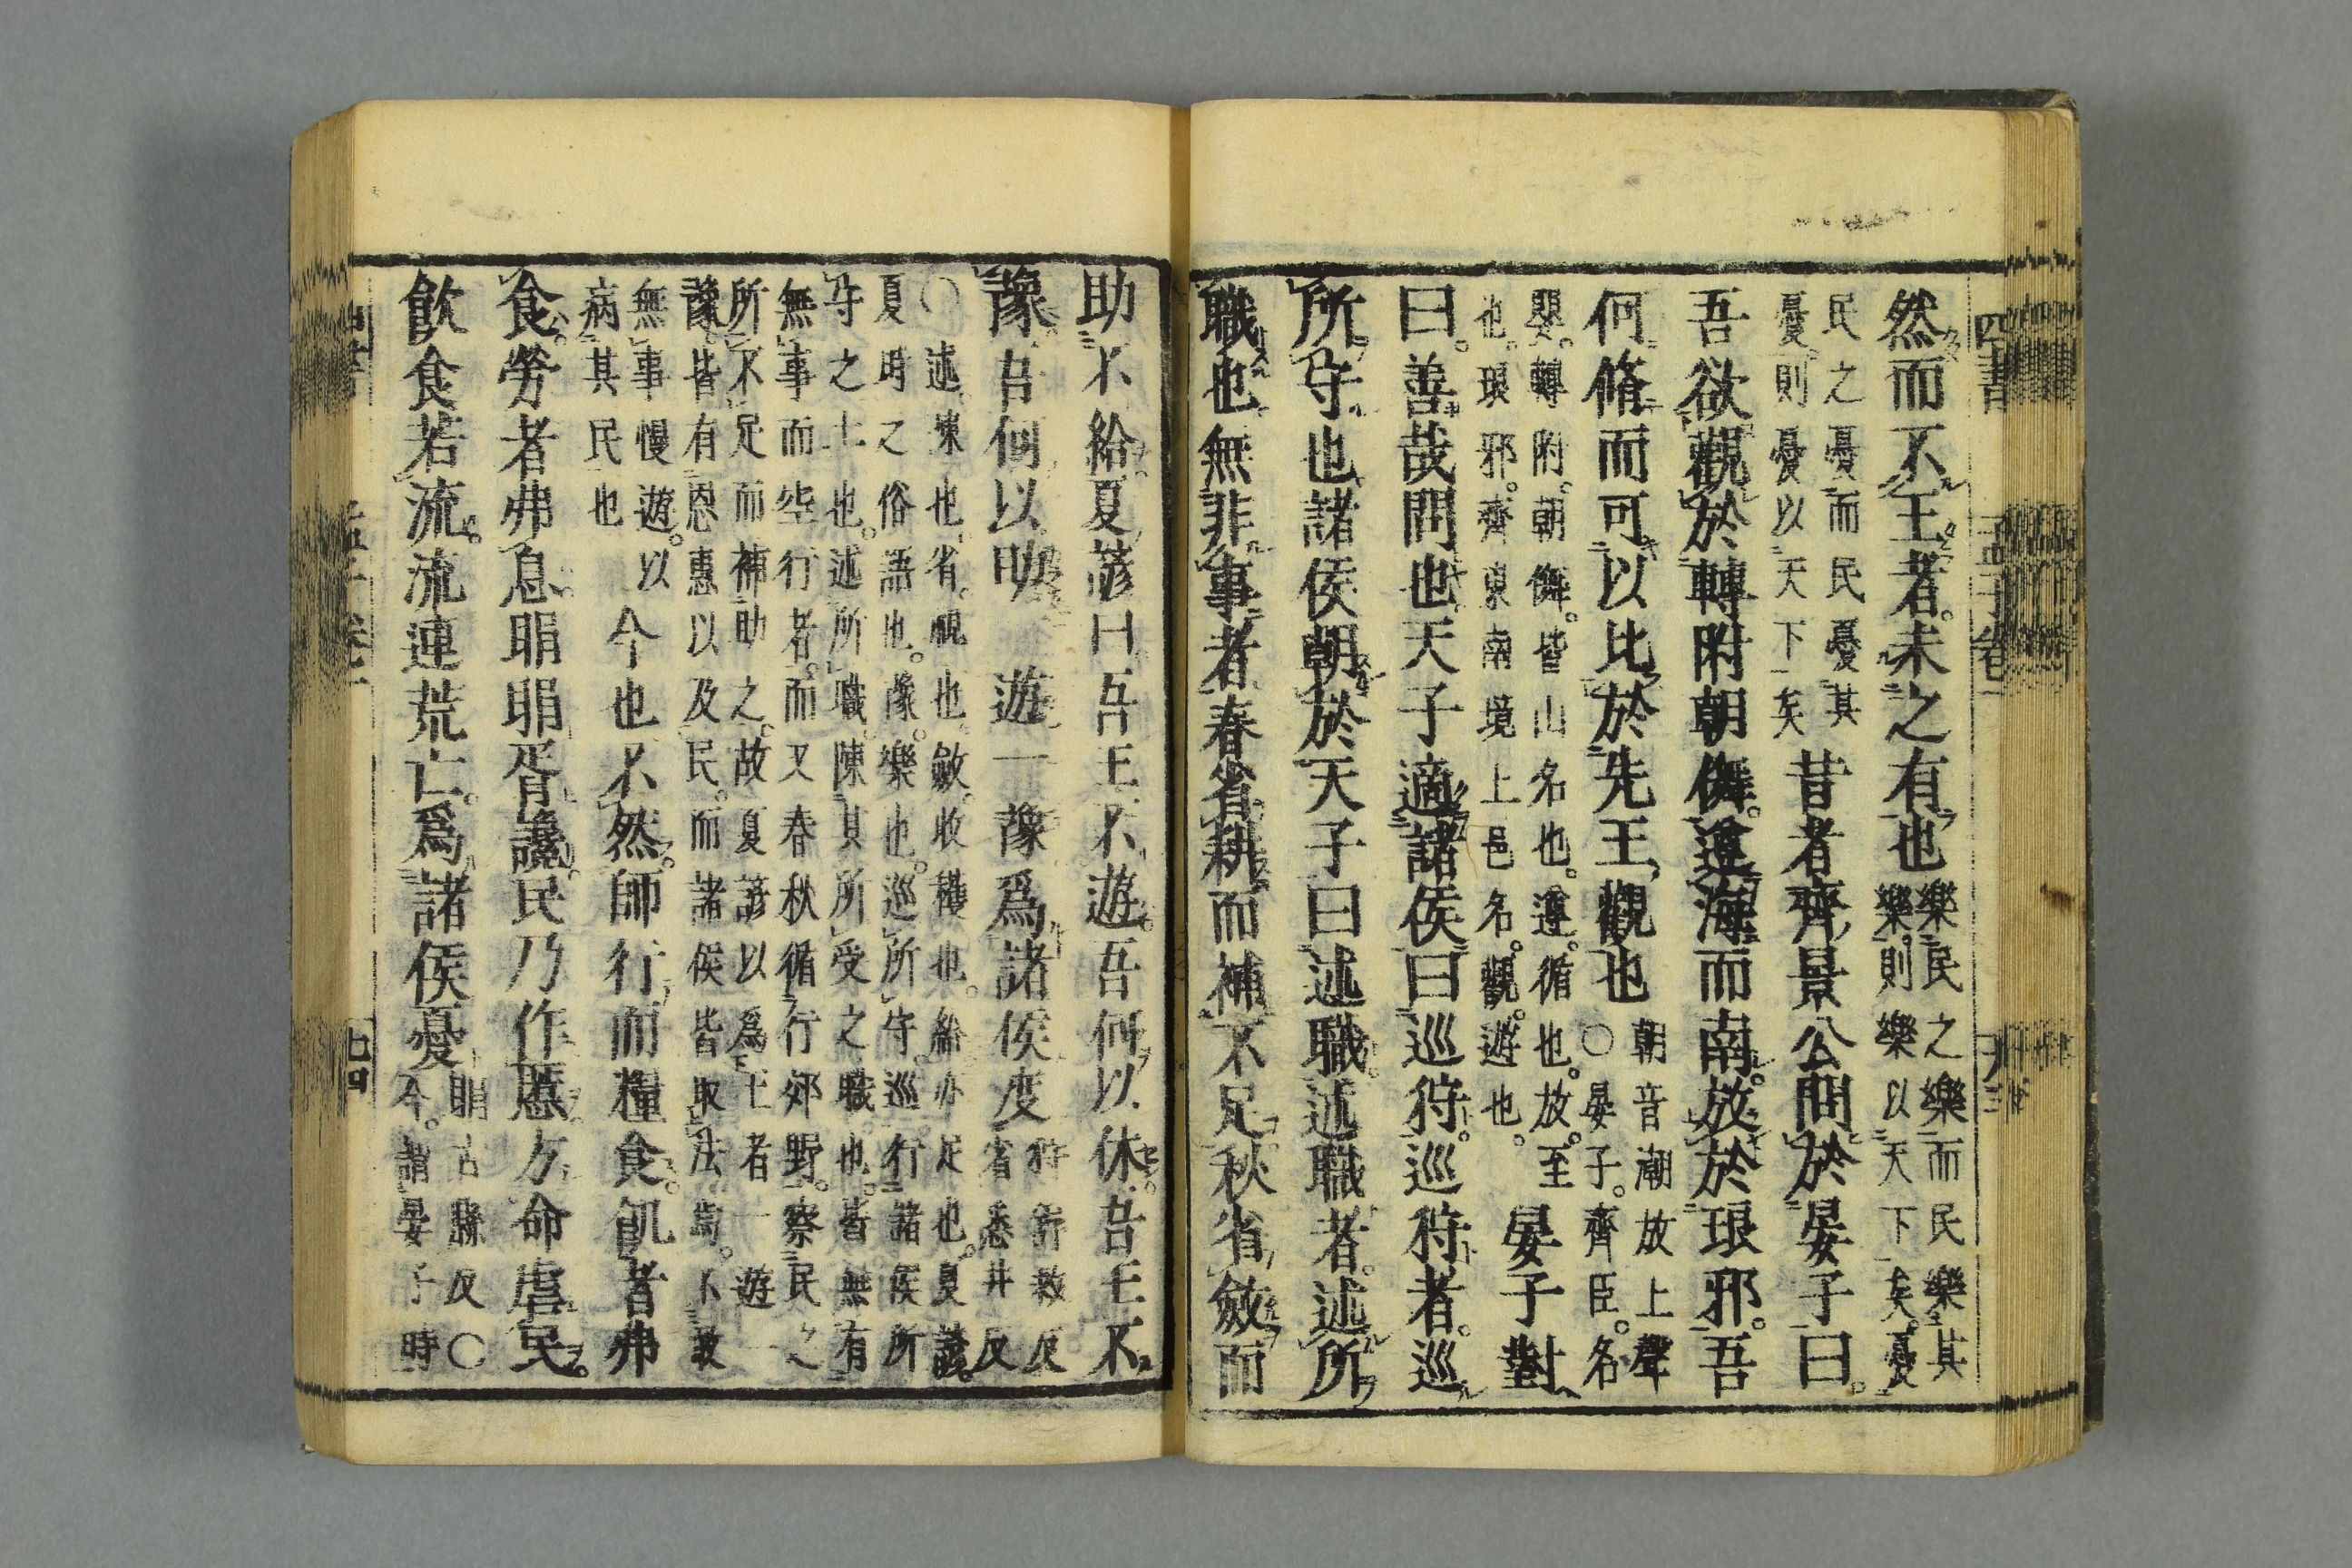 四書 孟子卷一
然而不王者。未之有也樂民之樂而民樂其樂。則樂以天下矣。憂
民之憂而民憂其憂。則憂以天下矣昔者齊景公問於晏子曰。
吾欲觀於轉附朝儛。遵海而南。放於琅邪。吾
何脩而可以比於先王觀也朝音潮放上聲〇晏子。齊臣。名
嬰。轉附。朝儛。皆山名也。遵。循也。放。至也。琅邪。齊東南境上邑名。觀。遊也。晏子對
曰。善哉問也天子適諸侯曰巡狩。巡狩者。巡
所守也諸侯朝於天子曰述職。述職者。述所
職也無非事者春省耕而補不足秋省斂而
助不給夏諺曰吾王不遊。吾何以休。吾王不
豫。吾何以助 遊一豫爲諸侯度狩舒救反省悉井反
〇述。陳也。省。視也。斂。收穫也。給亦足也。夏諺。
夏時之俗語也。豫。樂也。巡所守。巡行諸侯所
守之土也。述所職。陳其所受之職也。皆無有
無事而空行者。而又春秋循行郊野。察民之
所不足而補助之。故夏諺以爲王者一遊一
豫。皆有恩惠以及民。而諸侯皆取法焉。不敢
無事慢遊。以病其民也今也不然。師行而糧食。飢者弗
食。勞者弗息。睊睊胥讒。民乃作慝。方命虐民。
飲食若流。流連荒亡。爲諸侯憂睊古縣反〇今。謂晏子時
四書 孟子卷一 十四